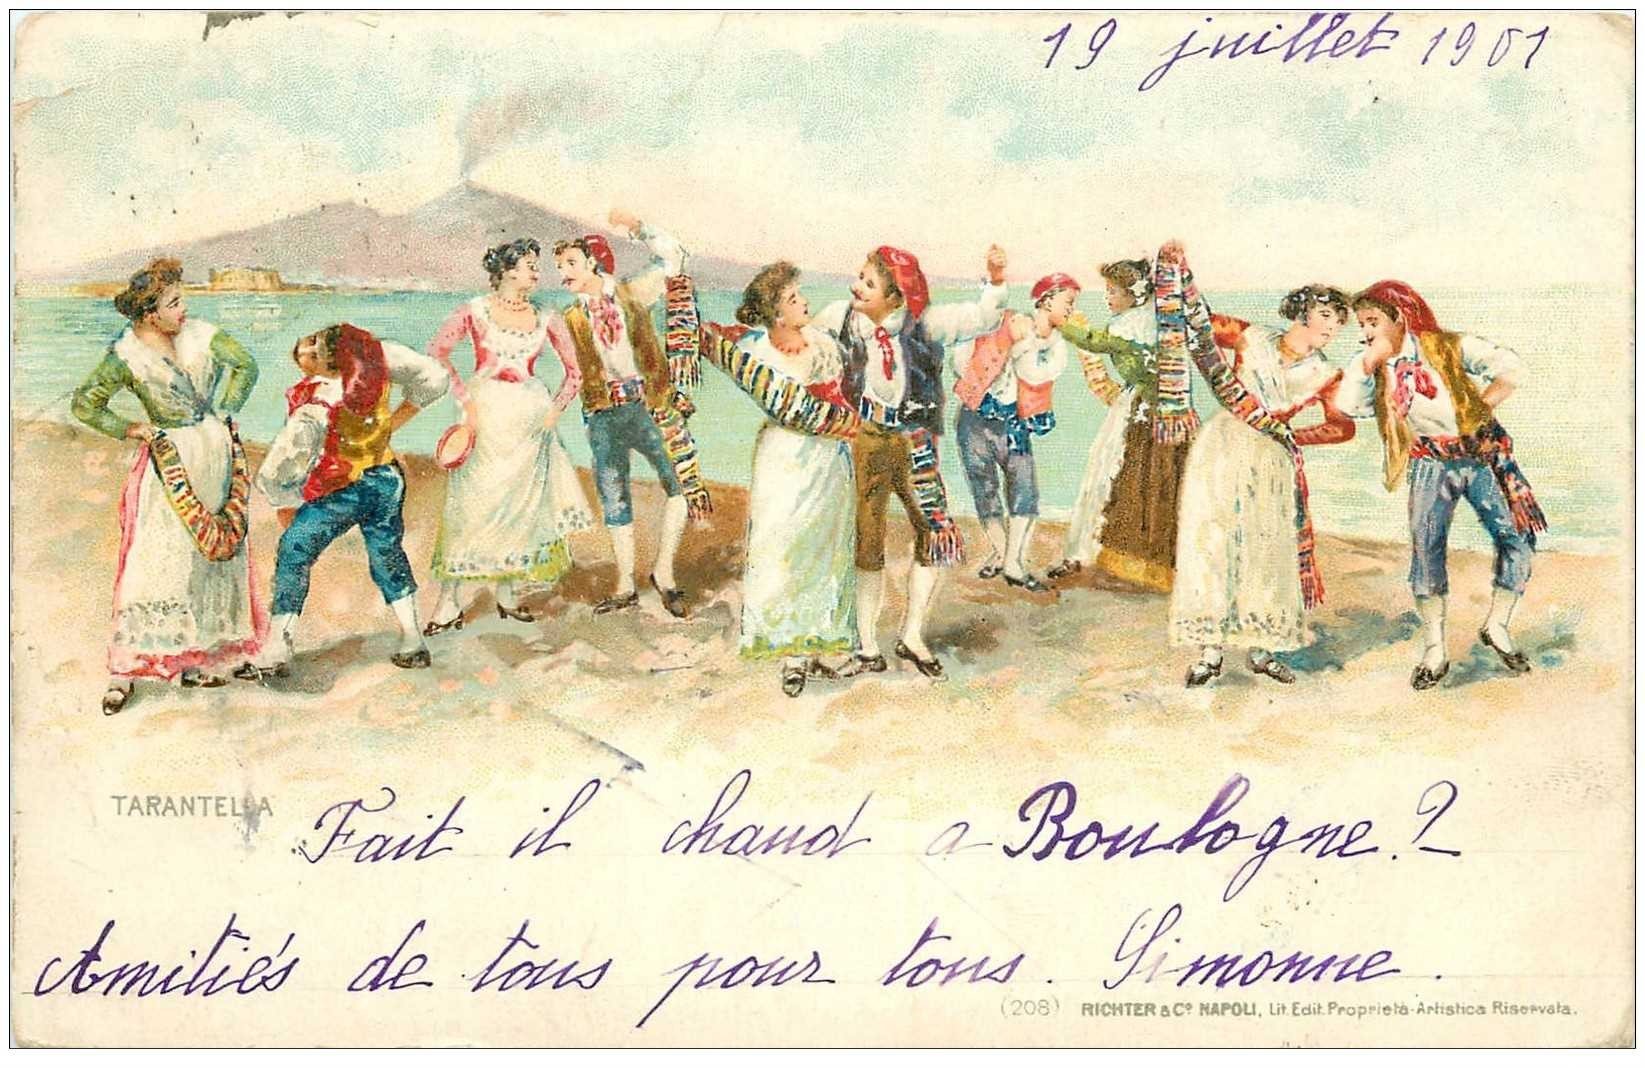 19 juillet 1901
TARANTELLA
Fait il chaud a Boulogne.?
Amitiés de tous pour tous. Simonne.
(208) RICHTER & Cº NAPOLI, Lit. Edit. Proprietà-Artistica Riservata.